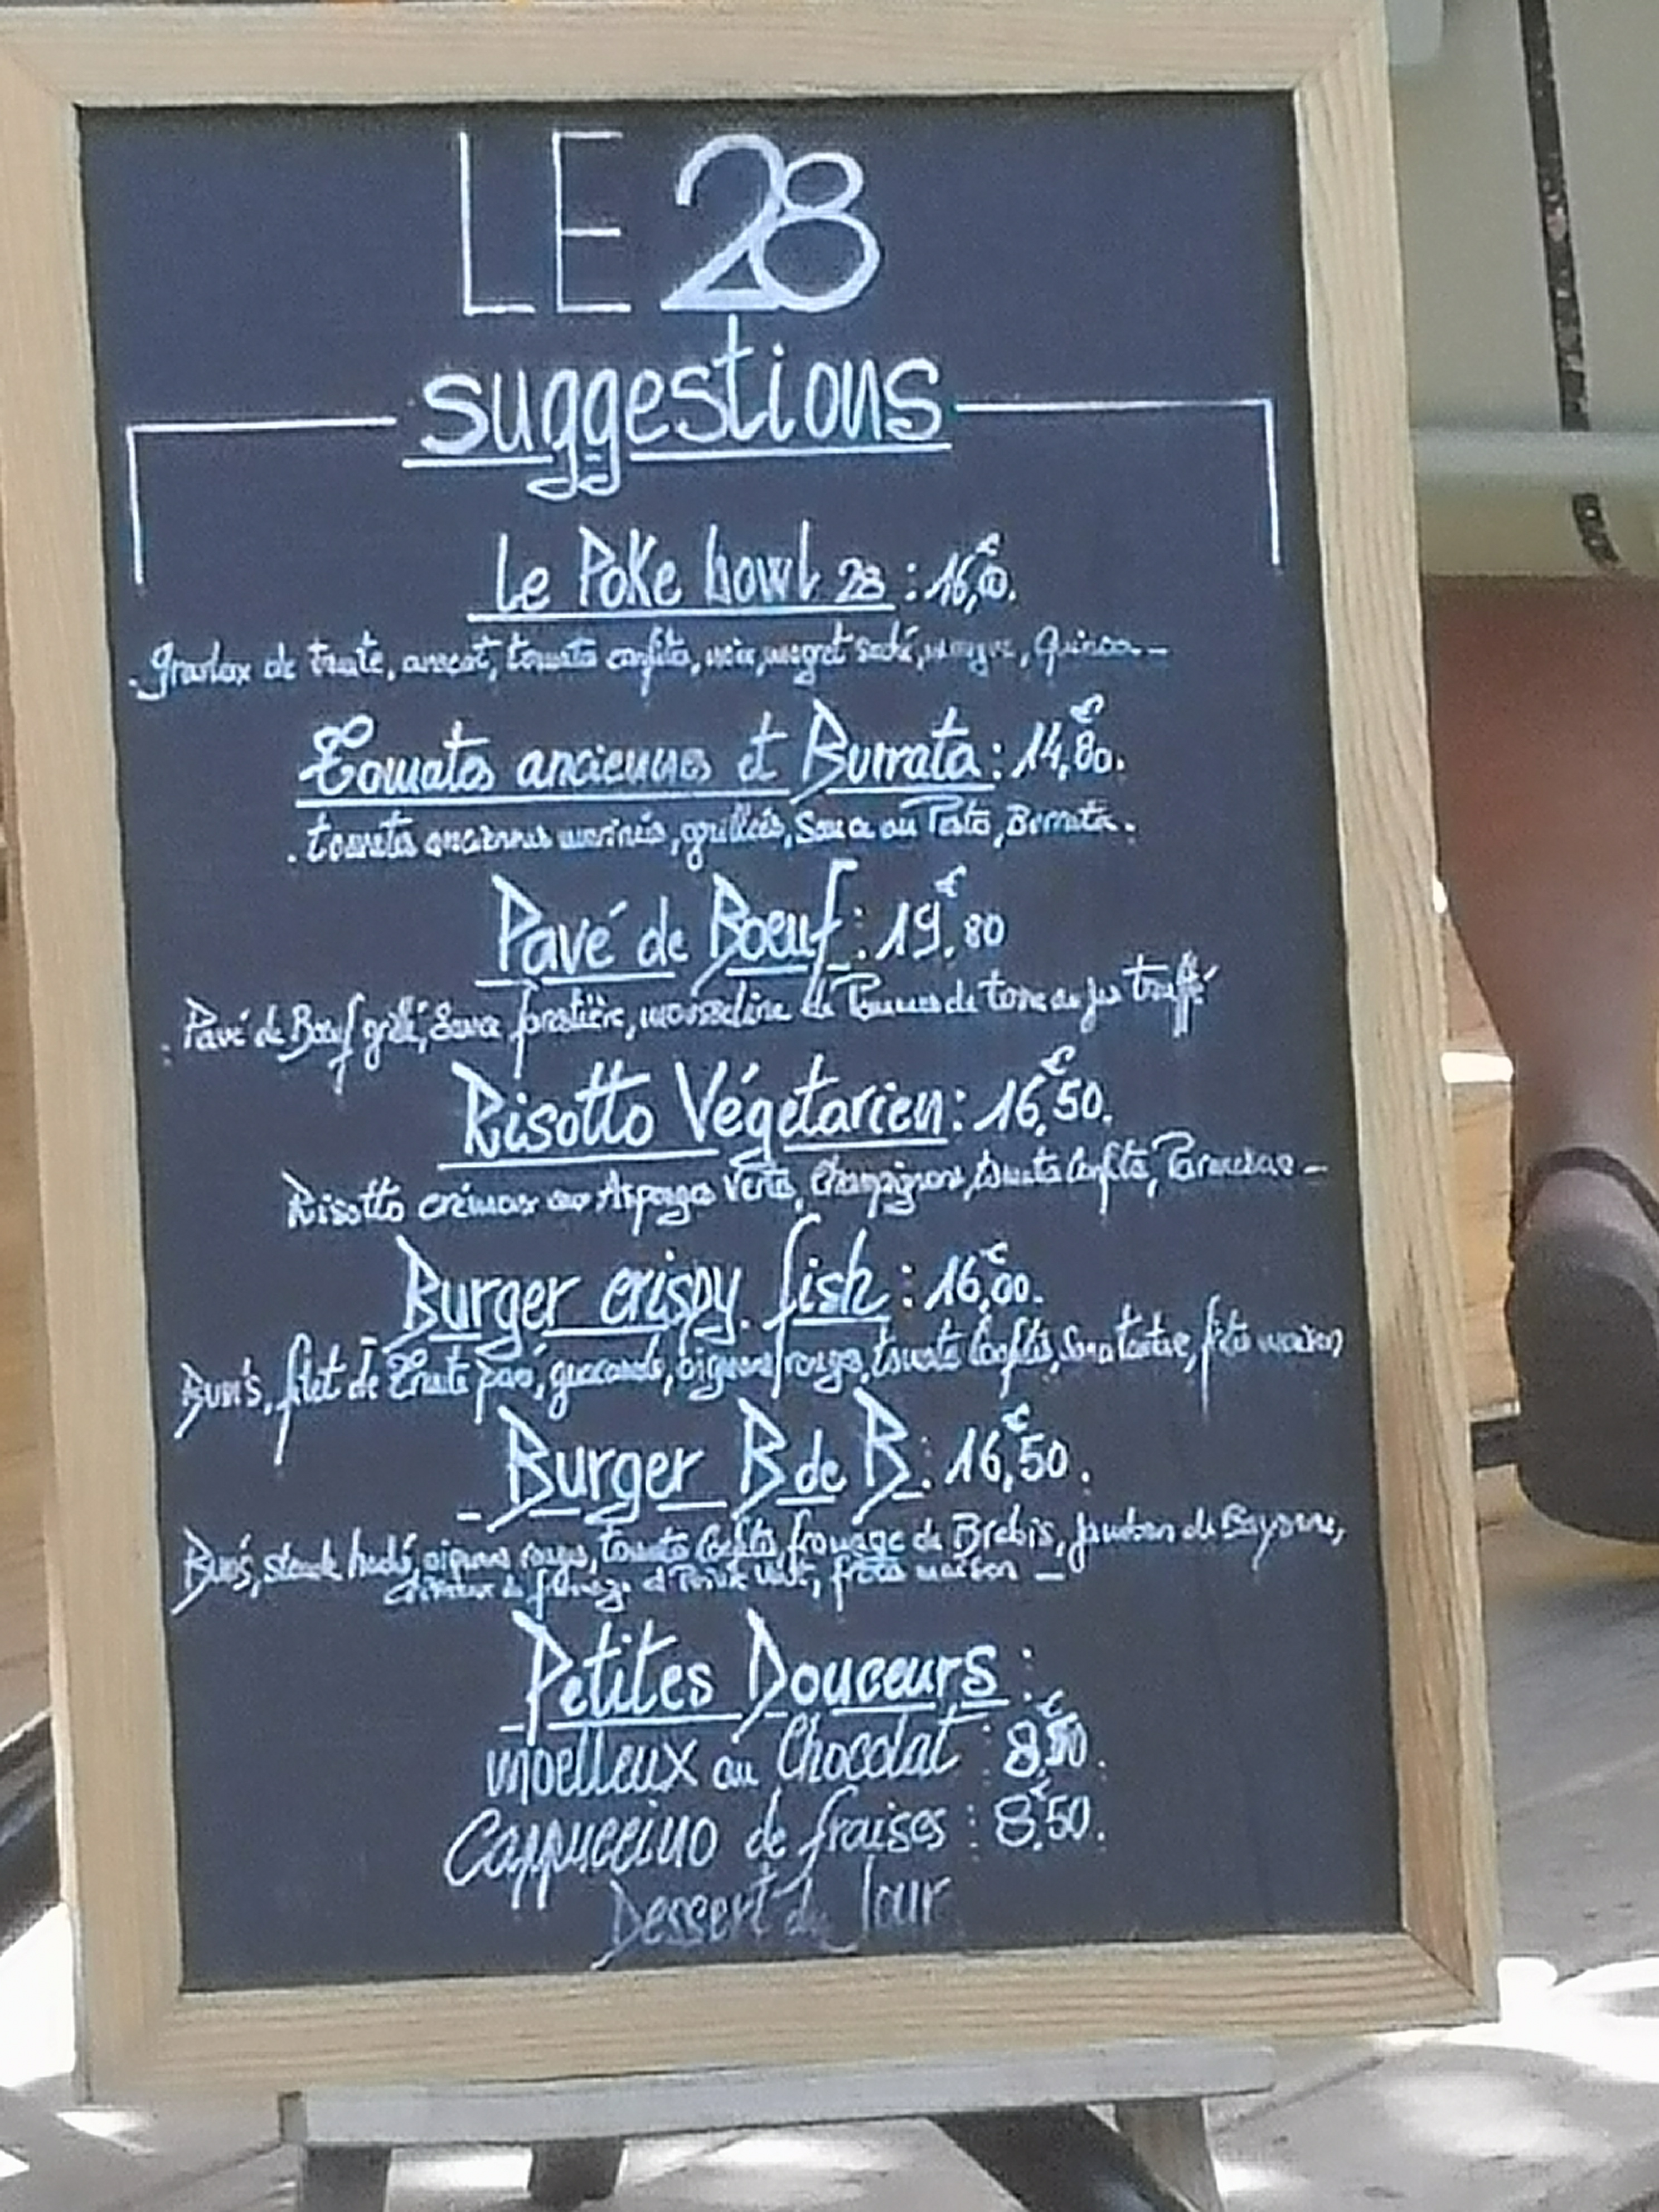 LE 28
suggestions
Le Poke bowl 28 : 16,€00.
. gravlax de truite, avocat, tomate confite, noix, magret séché, Quinoa _
Tomates anciennes et Burrata : 14,€80.
. tomates anciennes marinés, grillés, Sauce au Pesto, Burrata .
Pavé de Boeuf : 19,€80
: Pavé de Boeuf grillé, Sauce forestière, mousseline de Pommes de terre au jus truffé
Risotto Végétarien : 16,€50.
Risotto crémeux aux Asperges Vertes, Champignons, tomate Confite, Parmesan _
Burger crispy fish : 16,€00.
Bun's, filet de Truite pané, guacamole, oignons rouges, tomate Confites, Sauce tartare, frites maison
Burger B de B : 16,€50.
Bun's, steak haché, oignons rouges, tomate Confite, fromage de Brebis, Jambon de Bayonne,
et Poivre Vert, frites maison _
Petites Douceurs :
Moelleux au Chocolat : 8,€50.
Cappuccino de fraises : 8,€50.
Dessert du Jour